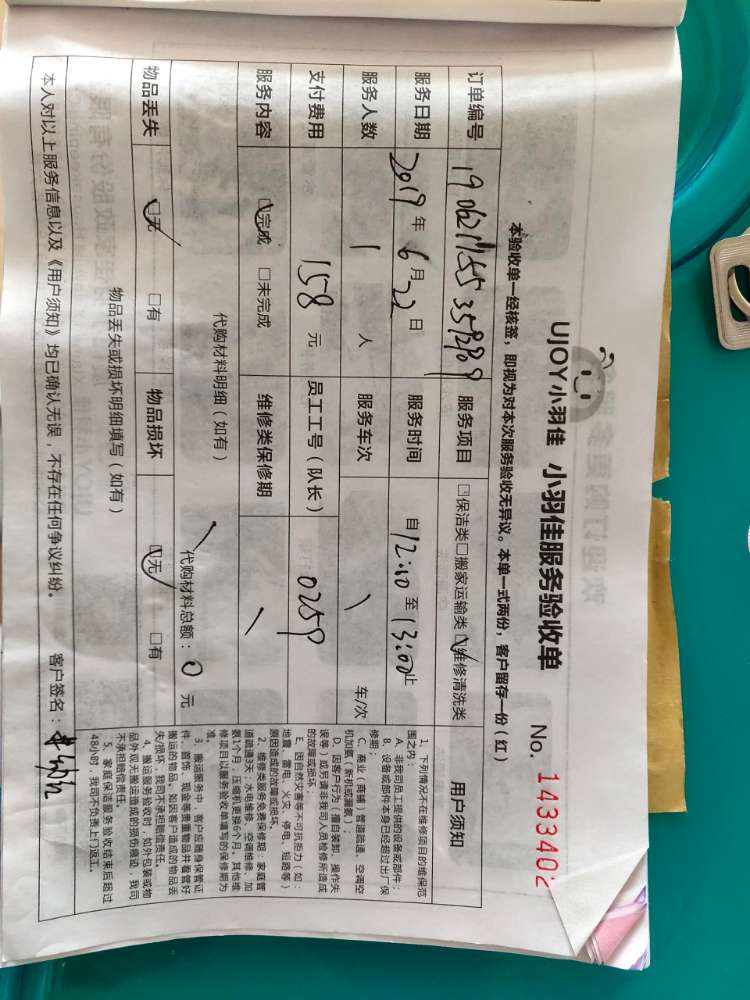 UJOY小羽佳 小羽佳服务验收单 No. 1433402
本验收单一经核签，即视为对本次服务验收无异议。本单一式两份，客户留存一份（红）
订单编号 服务项目 □保洁类□搬家运输类☑维修清洗类 用户须知
服务日期 2019年6月22日 服务时间 自12:10至13:00止
服务人数 1 人 服务车次 \ 车/次
支付费用 158 元 员工工号（队长） 0259
服务内容 ☑完成 □未完成 维修类保修期 \
代购材料明细（如有）
\ 代购材料总额：0 元
物品丢失 ☑无 □有 物品损坏 ☑无 □有
物品丢失或损坏明细填写（如有）
本人对以上服务信息以及《用户须知》均已确认无误，不存在任何争议纠纷。 客户签名：
1、下列情况不在维修项目的维保范
围之内：
A、非我司员工提供的设备或部件；
B、设备或部件本身已经超过出厂保
修期；
C、商业（商铺）管道疏通、空调空
机加氟（新机或漏氟）；
D、因客户行为（擅自装卸、操作失
误等）或另请非我司人员检修所造成
的故障或损坏；
E、因自然灾害等不可抗拒力（如：
地震、雷电、火灾、停电、短路等）
原因造成的故障或损坏。
2、维修类服务免费保修期：家庭管
道疏通3天；水电维修、空调维修、加
氨1个月，压缩机更换6个月。其他维
修项目以服务验收单填写的保修期为
准。
3、搬运服务中，客户应随身保管证
件、首饰、现金等贵重物品并看管好
搬运的物品。如因客户造成的物品丢
失/损坏，我司不承担赔偿责任。
4、搬运服务验收时，如外包装或物
品外观无搬运造成的损伤痕迹，我司
不承担赔偿责任。
5、家庭保洁服务验收结束后超过
48小时，我司不负责上门返工。